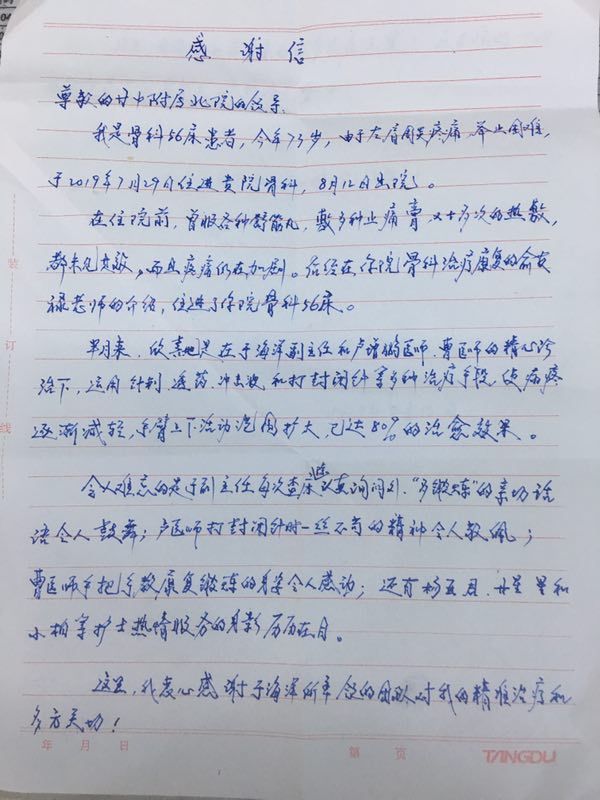 感谢信
尊敬的 中附属北院的领导.
我是骨科56床患者,今年73岁,由于左肩周炎疼痛,举止困难,
于2019年7月29日住进贵院骨科,8月12日出院。
在住院前,曾服各种舒筋丸,敷多种止痛膏 又十多次的热敷,
都未见其效,而且疼痛仍在加剧。后经在你院骨科治疗康复的俞友
禄老师的介绍,住进了你院骨科56床。
半月来,欣喜地是在于海洋副主任和卢增鹏医师.曹医师的精心诊
治下,运用针刺 透药.冲击波和打封闭针等多种治疗手段,使病疼
逐渐减轻,手臂上下活动范围扩大,已达80%的治愈效果。
令人难忘的是于副主任每次查床除认真询问外,“多锻炼”的亲切话
语令人鼓舞;卢医师打封闭针时一丝不苟的精神令人敬佩;
曹医师手把手教康复锻炼的身姿令人感动;还有杨 星星和
小柏等护士热情服务的身影历历在目。
这里,我衷心感谢于海洋所率领的团队对我的精准治疗和
多方关切!
装
订
线
年 月 日
第 页
TANGDU
04